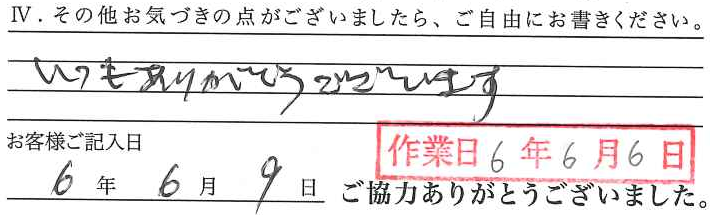 Ⅳ．その他お気づきの点がございましたら、ご自由にお書きください。
いつもありがとうございます
お客様ご記入日
作業日6年6月6日
6年6月9日 ご協力ありがとうございました。